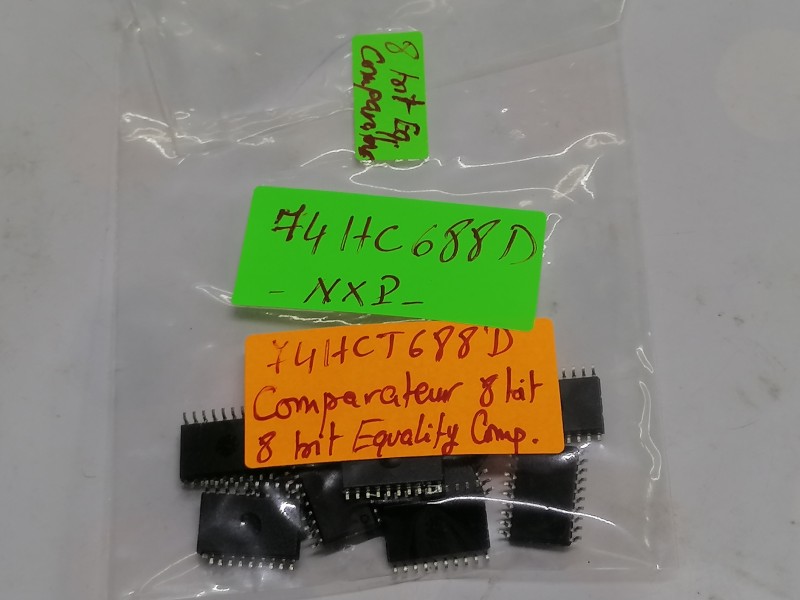 8 bit Eq.
74HC688D
- NXP -
74HCT688D
Comparateur 8 bit
8 bit Equality Comp.